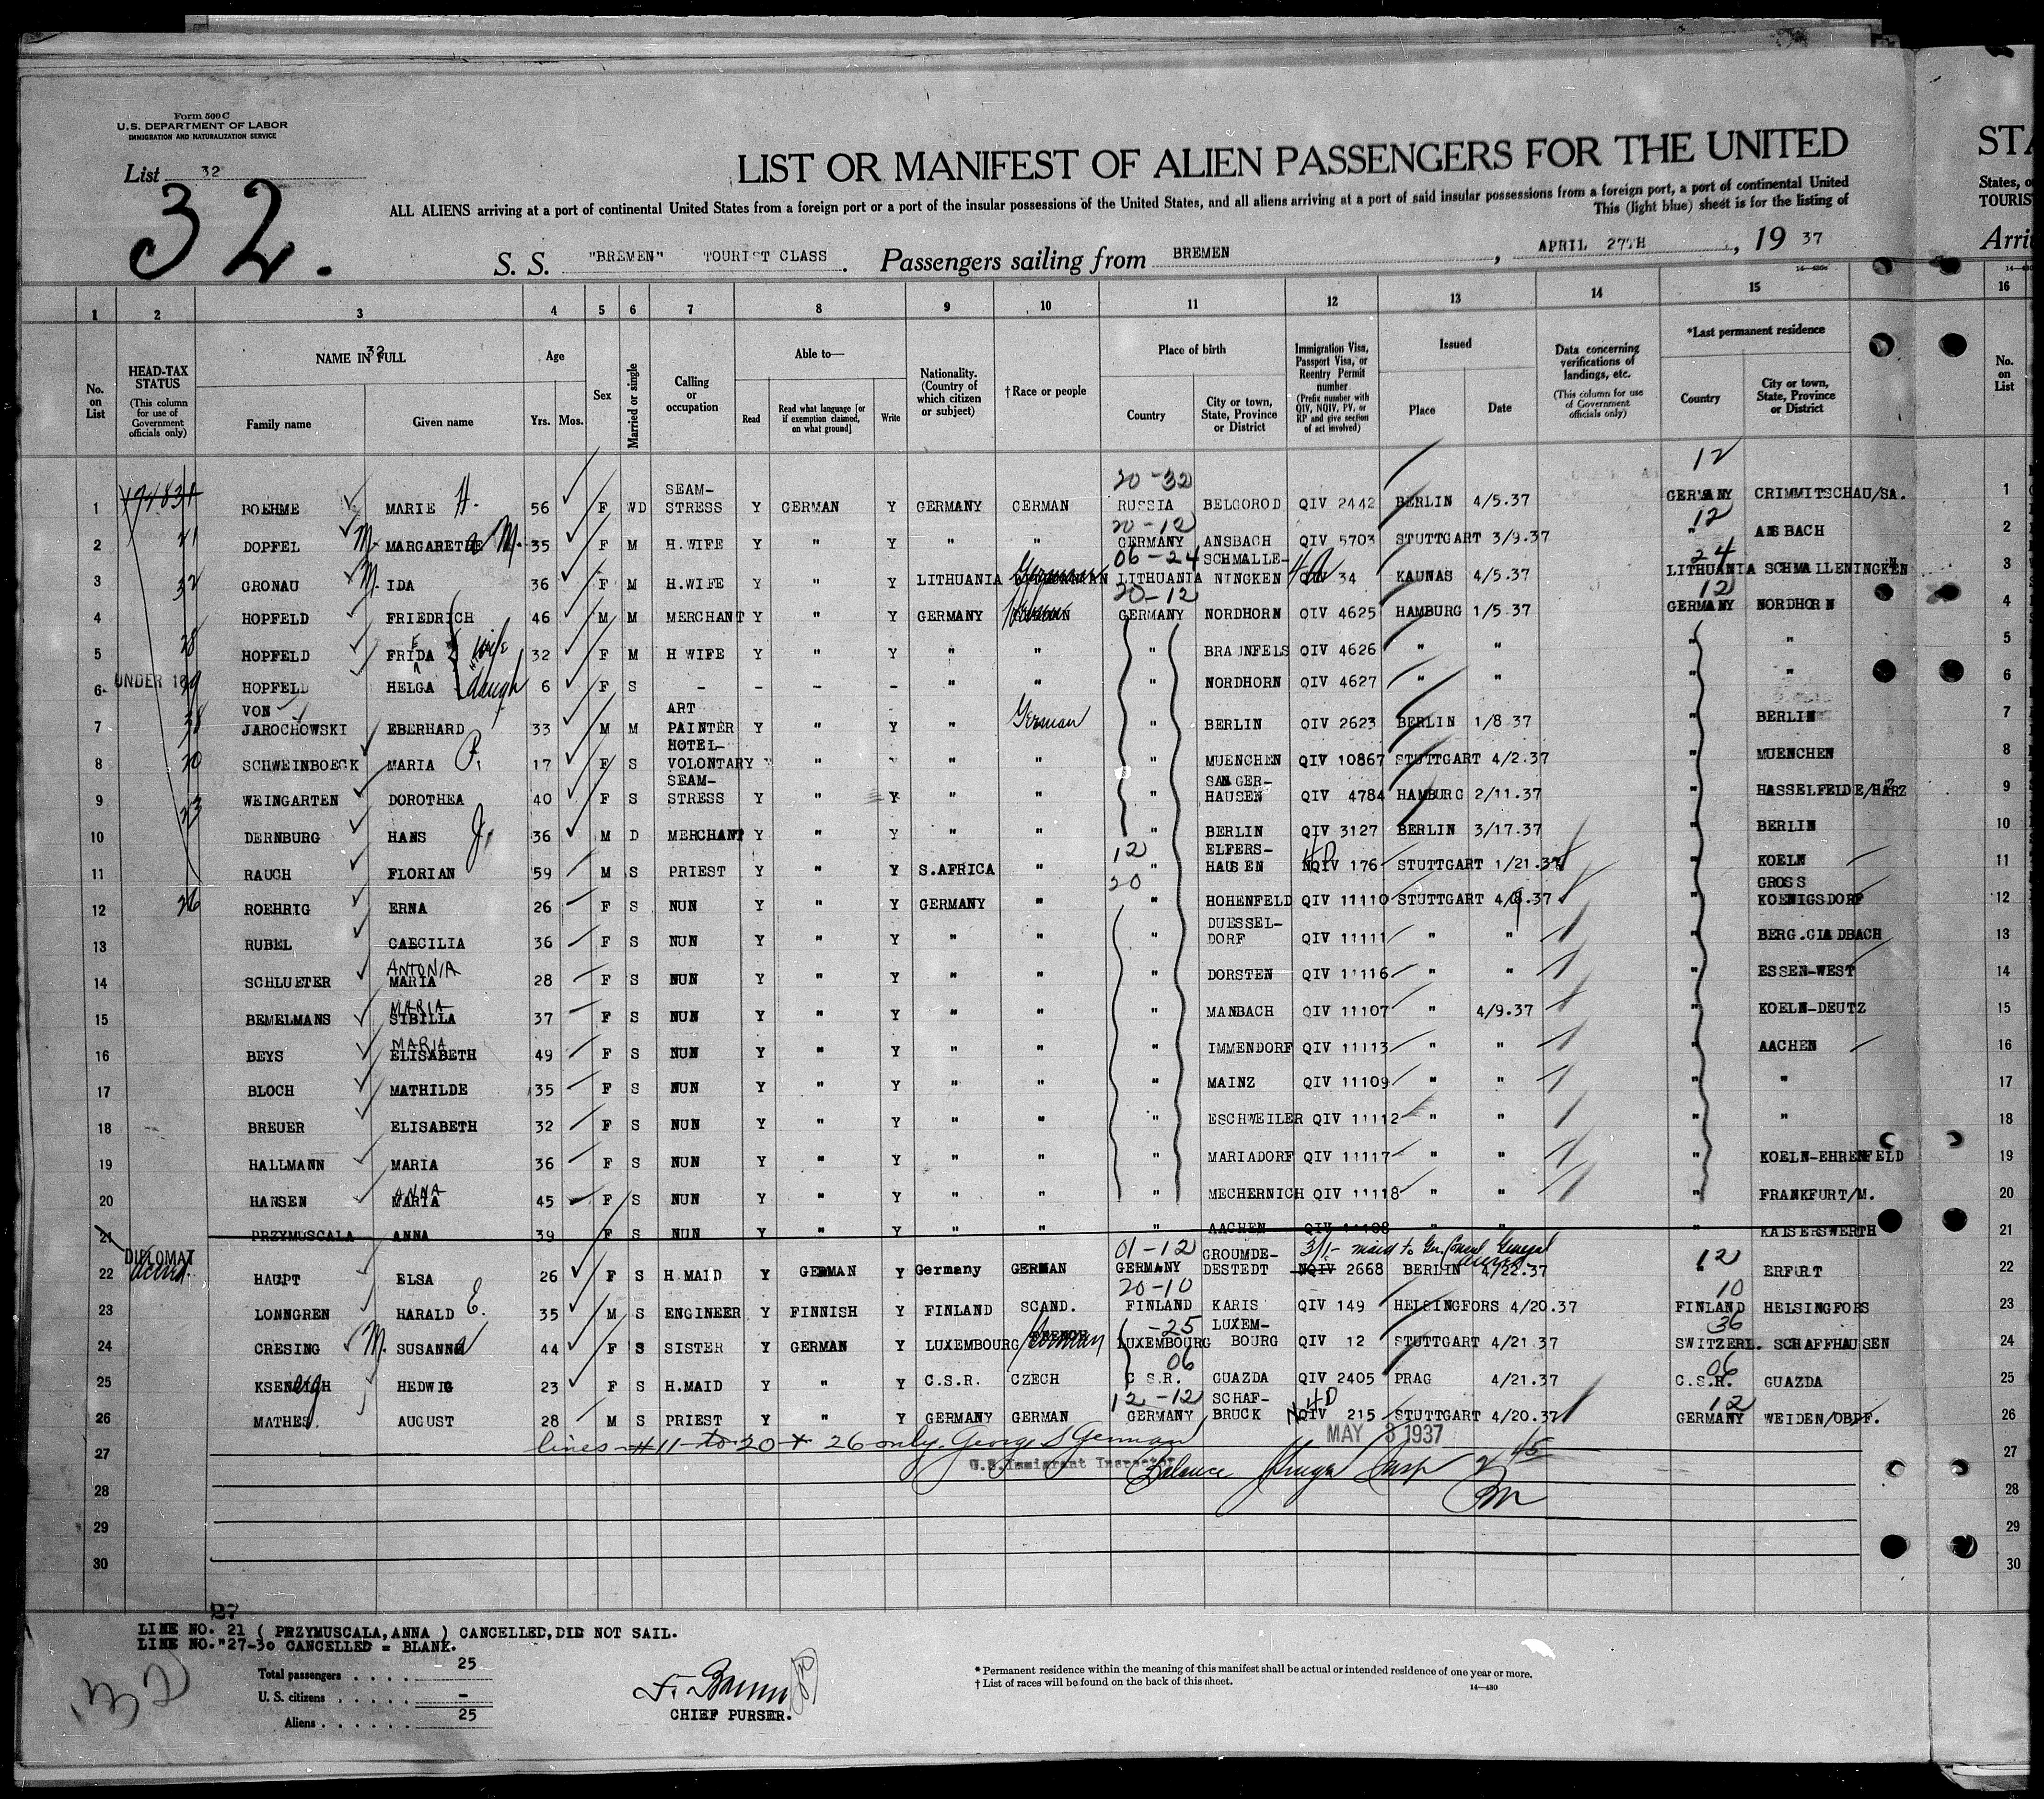 Form 500 C
U.S. DEPARTMENT OF LABOR
IMMIGRATION AND NATURALIZATION SERVICE
List 32
32.
LIST OR MANIFEST OF ALIEN PASSENGERS FOR THE UNITED
STA
ALL ALIENS arriving at a port of continental United States from a foreign port or a port of the insular possessions of the United States, and all aliens arriving at a port of said insular possessions from a foreign port, a port of continental United
States, o
This (light blue) sheet is for the listing of
TOURIS
S. S. "BREMEN" TOURIST CLASS. Passengers sailing from BREMEN, APRIL 27TH, 19 37
Arri
1 2 3 4 5 6 7 8 9 10 11 12 13 14 15 16
No. on List
HEAD-TAX STATUS (This column for use of Government officials only)
NAME IN FULL 32
Family name Given name
Age Yrs. Mos.
Sex
Married or single
Calling or occupation
Able to—
Read Read what language [or if exemption claimed, on what ground] Write
Nationality. (Country of which citizen or subject)
†Race or people
Place of birth
Country City or town, State, Province or District
Immigration Visa, Passport Visa, or Reentry Permit number (Prefix number with QIV, NQIV, PV, or RP and give section of act involved)
Issued
Place Date
Data concerning verifications of landings, etc. (This column for use of Government officials only)
*Last permanent residence
Country City or town, State, Province or District
No. on List
20-32 12
1 BOEHME MARIE H. 56 F WD SEAM-STRESS Y GERMAN Y GERMANY GERMAN RUSSIA BELGOROD QIV 2442 BERLIN 4/5.37 GERMANY CRIMMITSCHAU/SA. 1
20-12 12
2 DOPFEL M. MARGARETHE M. 35 F M H.WIFE Y " Y " " GERMANY ANSBACH QIV 5703 STUTTGART 3/9.37 " ANSBACH 2
06-24 24
3 GRONAU M. IDA 36 F M H.WIFE Y " Y LITHUANIA German LITHUANIA SCHMALLE-NINGKEN 34 KAUNAS 4/5.37 LITHUANIA SCHMALLENINGKEN 3
20-12 12
4 HOPFELD FRIEDRICH 46 M M MERCHANT Y " Y GERMANY German GERMANY NORDHORN QIV 4625 HAMBURG 1/5.37 GERMANY NORDHORN 4
5 HOPFELD FRIEDA wife 32 F M H WIFE Y " Y " " " BRAUNFELS QIV 4626 " " " " 5
6 UNDER 16 HOPFELD HELGA daugh 6 F S - - - - " " " NORDHORN QIV 4627 " " " " 6
7 VON JAROCHOWSKI EBERHARD 33 M M ART PAINTER Y " Y " German " BERLIN QIV 2623 BERLIN 1/8 37 " BERLIN 7
8 SCHWEINBOECK MARIA P. 17 F S HOTEL-VOLONTARY Y " Y " " " MUENCHEN QIV 10867 STUTTGART 4/2.37 " MUENCHEN 8
9 WEINGARTEN DOROTHEA 40 F S SEAM-STRESS Y " Y " " " SANGER-HAUSEN QIV 4784 HAMBURG 2/11.37 " HASSELFELDE/HARZ 9
10 DERNBURG HANS J. 36 M D MERCHANT Y " Y " " " BERLIN QIV 3127 BERLIN 3/17.37 " BERLIN 10
12 4D
11 RAUCH FLORIAN 59 M S PRIEST Y " Y S.AFRICA " " ELFERS-HAUSEN NQIV 176 STUTTGART 1/21.37 " KOELN 11
20
12 ROEHRIG ERNA 26 F S NUN Y " Y GERMANY " " HOHENFELD QIV 11110 STUTTGART 4/9.37 " GROSS KOENIGSDORF 12
13 RUBEL CAECILIA 36 F S NUN Y " Y " " " DUESSEL-DORF QIV 11111 " " " BERG.GLADBACH 13
14 SCHLUETER ANTONIA MARIA 28 F S NUN Y " Y " " " DORSTEN QIV 11116 " " " ESSEN-WEST 14
15 BEMELMANS MARIA SIBILLA 37 F S NUN Y " Y " " " MANBACH QIV 11107 " 4/9.37 " KOELN-DEUTZ 15
16 BEYS MARIA ELISABETH 49 F S NUN Y " Y " " " IMMENDORF QIV 11113 " " " AACHEN 16
17 BLOCH MATHILDE 35 F S NUN Y " Y " " " MAINZ QIV 11109 " " " " 17
18 BREUER ELISABETH 32 F S NUN Y " Y " " " ESCHWEILER QIV 11112 " " " " 18
19 HALLMANN MARIA 36 F S NUN Y " Y " " " MARIADORF QIV 11117 " " " KOELN-EHRENFELD 19
20 HANSEN ANNA MARIA 45 F S NUN Y " Y " " " MECHERNICH QIV 11118 " " " FRANKFURT/M. 20
21 PRZYMUSCALA ANNA 39 F S NUN Y " Y " " " AACHEN QIV 11108 " " " KAISERSWERTH 21
DIPLOMAT 01-12 3/1- maid to Ger. Consul General 12
22 HAUPT ELSA 26 F S H MAID Y GERMAN Y Germany GERMAN GERMANY GROUMDE-DESTEDT NQIV 2668 BERLIN 4/22.37 " ERFURT 22
20-10 10
23 LONNGREN HARALD E. 35 M S ENGINEER Y FINNISH Y FINLAND SCAND. FINLAND KARIS QIV 149 HELSINGFORS 4/20.37 FINLAND HELSINGFORS 23
-25 36
24 CRESING M. SUSANNA 44 F S SISTER Y GERMAN Y LUXEMBOURG German LUXEMBOURG LUXEM-BOURG QIV 12 STUTTGART 4/21.37 SWITZERL. SCHAFFHAUSEN 24
06 06
25 KSENEIGH HEDWIG 23 F S H.MAID Y " Y C.S.R. CZECH C.S.R. GUAZDA QIV 2405 PRAG 4/21.37 C.S.R. GUAZDA 25
12-12 4D 12
26 MATHES AUGUST 28 M S PRIEST Y " Y GERMANY GERMAN GERMANY SCHAF-BRUCK NQIV 215 STUTTGART 4/20.37 GERMANY WEIDEN/OBPF. 26
lines #11 to 20 + 26 only. George S German MAY 8 1937
27 U.S. Immigrant Inspector Balance 27
28 28
29 29
30 30
LINE NO. 21 ( PRZYMUSCALA,ANNA ) CANCELLED,DID NOT SAIL.
LINE NO."27-30 CANCELLED = BLANK.
Total passengers . . . . 25
U. S. citizens . . . . . -
Aliens . . . . . . 25
32
CHIEF PURSER.
* Permanent residence within the meaning of this manifest shall be actual or intended residence of one year or more.
† List of races will be found on the back of this sheet.
14—430